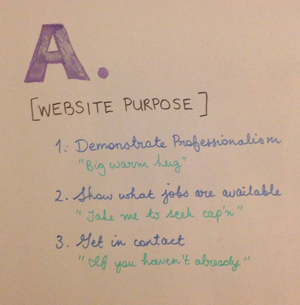 A.
[WEBSITE PURPOSE]
1. Demonstrate Professionalism
"Big warm hug"
2. Show what jobs are available
"Take me to seek cap'n"
3. Get in contact
"If you haven't already"